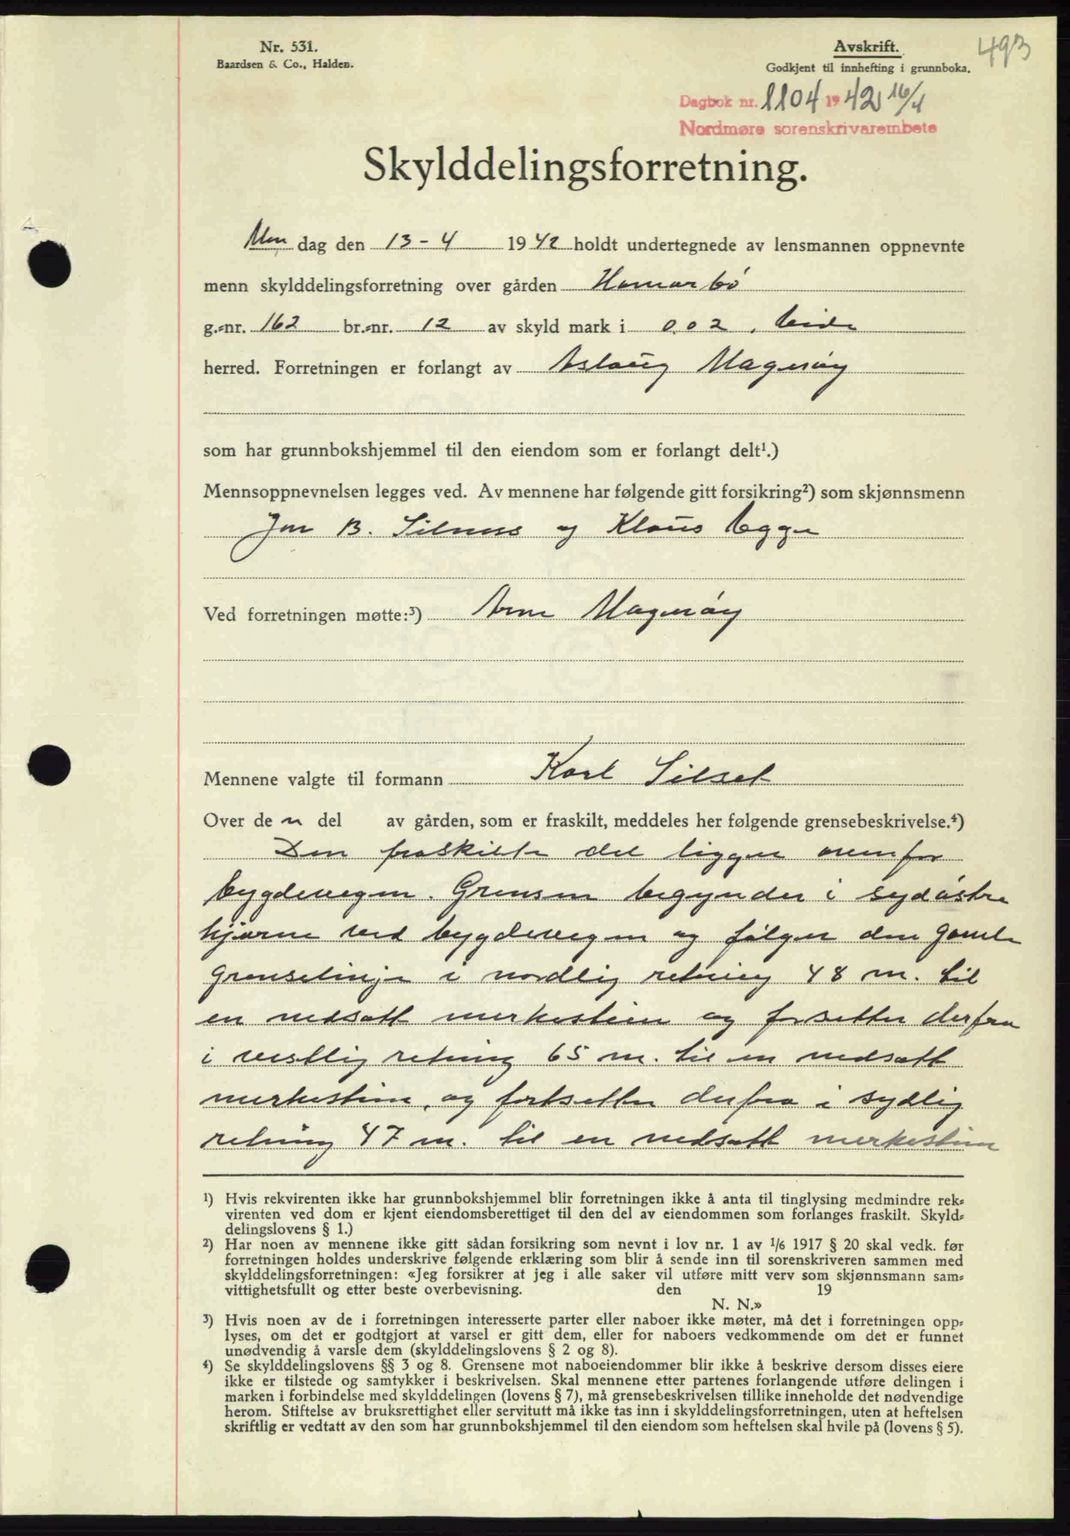 Nr. 531.
Baardsen & Co., Halden.
Avskrift.
Godkjent til innhefting i grunnboka.
493
Dagbok nr. 1104 1942 16/4
Nordmøre sorenskrivarembete
Skylddelingsforretning.
Mandag den 13-4 1942 holdt undertegnede av lensmannen oppnevnte
menn skylddelingsforretning over gården Hamarbö
g.-nr. 162 br.-nr. 12 av skyld mark i 0.02, Eide
herred. Forretningen er forlangt av Aslaug Magerøy
som har grunnbokshjemmel til den eiendom som er forlangt delt¹.)
Mennsoppnevnelsen legges ved. Av mennene har følgende gitt forsikring²) som skjønnsmenn
B. Silnes og Klaus Egge
Ved forretningen møtte:³) Arne Magerøy
Mennene valgte til formann Karl Silset
Over den del av gården, som er fraskilt, meddeles her følgende grensebeskrivelse.⁴)
Den fraskilte del ligger ovenfor
bygdevegen. Grensen begynder i sydöstre
hjörne ved bygdevegen og fölger den gamle
grenselinje i nordlig retning 48 m. til
en nedsatt merkestein og forsetter derfra
i vestlig retning 65 m. til en nedsatt
merkestein, og fortsetter derfra i sydlig
retning 47 m. til en nedsatt merkestein
¹) Hvis rekvirenten ikke har grunnbokshjemmel blir forretningen ikke å anta til tinglysing medmindre rek-
virenten ved dom er kjent eiendomsberettiget til den del av eiendommen som forlanges fraskilt. Skyld-
delingslovens § 1.)
²) Har noen av mennene ikke gitt sådan forsikring som nevnt i lov nr. 1 av 1/6 1917 § 20 skal vedk. før
forretningen holdes underskrive følgende erklæring som blir å sende inn til sorenskriveren sammen med
skylddelingsforretningen: «Jeg forsikrer at jeg i alle saker vil utføre mitt verv som skjønnsmann sam-
vittighetsfullt og etter beste overbevisning. den 19
N. N.»
³) Hvis noen av de i forretningen interesserte parter eller naboer ikke møter, må det i forretningen opp-
lyses, om det er godtgjort at varsel er gitt dem, eller for naboers vedkommende om det er funnet
unødvendig å varsle dem (skylddelingslovens § 2 og 8).
⁴) Se skylddelingslovens §§ 3 og 8. Grensene mot naboeiendommer blir ikke å beskrive dersom disses eiere
ikke er tilstede og samtykker i beskrivelsen. Skal mennene etter partenes forlangende utføre delingen i
marken i forbindelse med skylddelingen (lovens § 7), må grensebeskrivelsen tillike inneholde det nødvendige
herom. Stiftelse av bruksrettighet eller servitutt må ikke tas inn i skylddelingsforretningen, uten at heftelsen
skriftlig er vedtatt av den som har grunnbokshjemmel til den eiendom som heftelsen skal hvile på (lovens § 5).